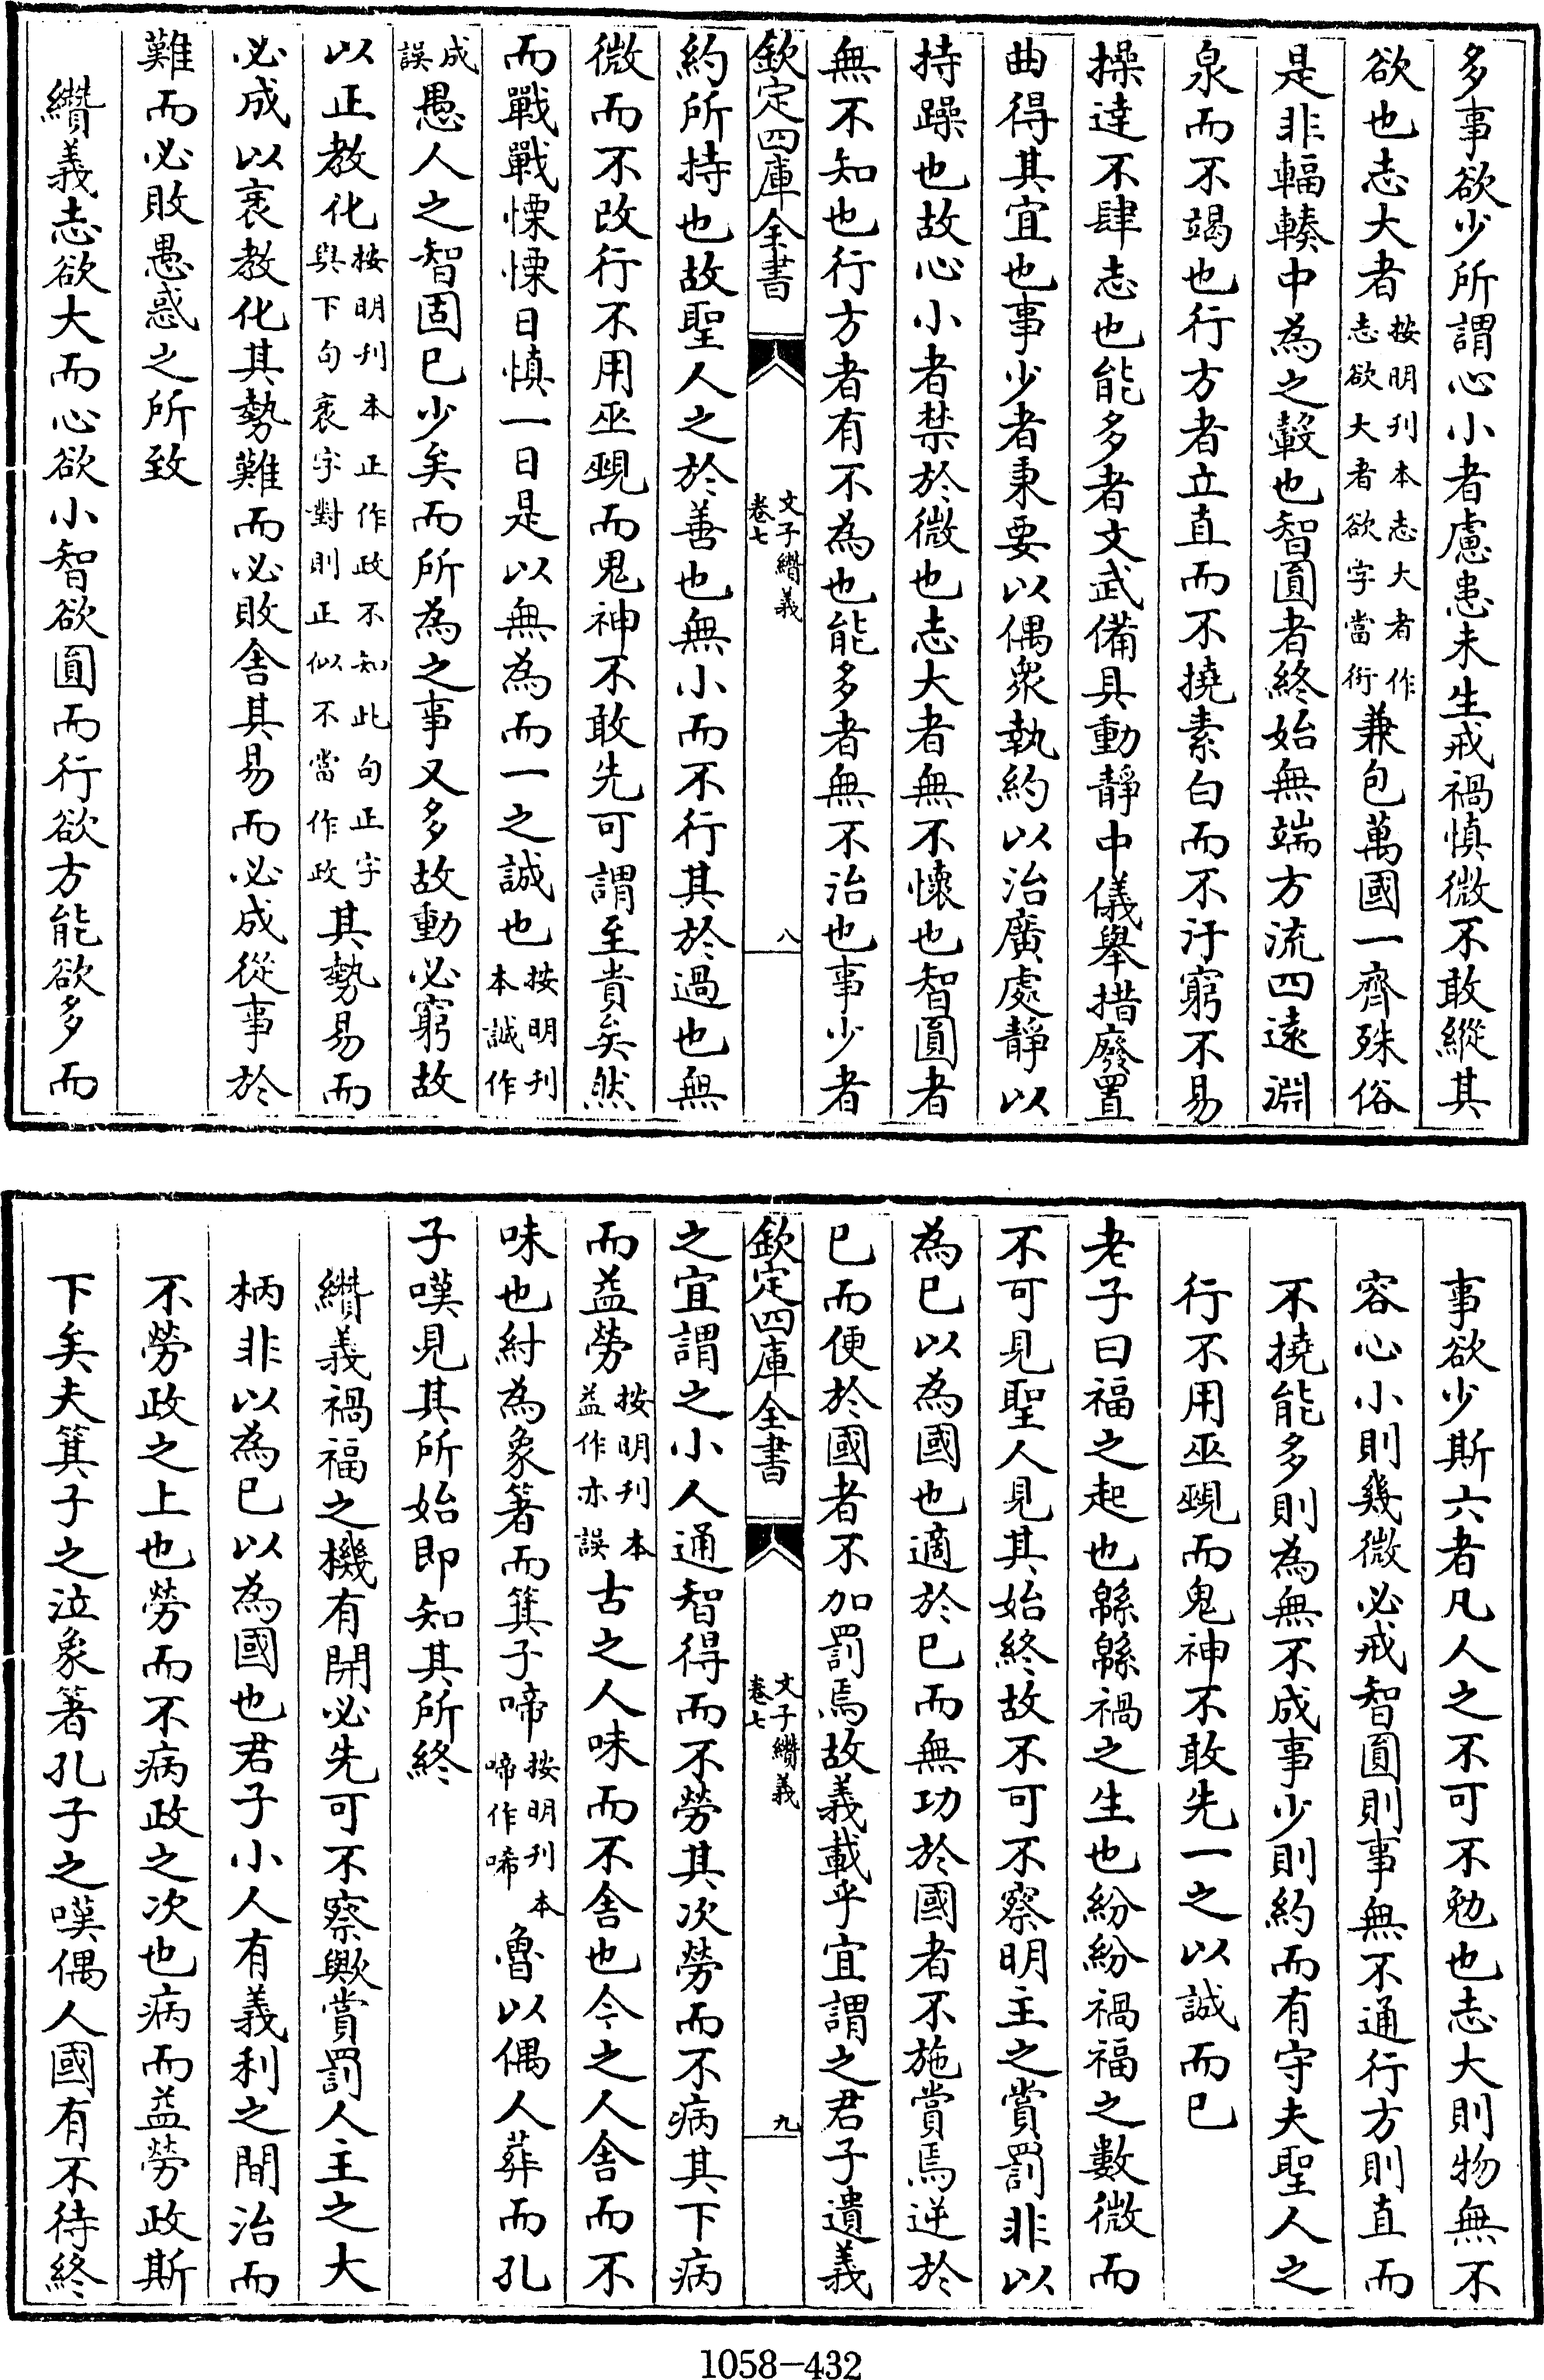 多事欲少所謂心小者慮患未生戒禍慎微不敢縱其
欲也志大者按明刊本志大者作志欲大者欲字當衍兼包萬國一齊殊俗
是非輻輳中為之轂也智圓者終始無端方流四遠淵
泉而不竭也行方者立直而不撓素白而不汙窮不易
操達不肆志也能多者文武備具動靜中儀舉措廢置
曲得其宜也事少者秉要以偶衆執約以治廣處靜以
持躁也故心小者禁於微也志大者無不懷也智圓者
無不知也行方者有不為也能多者無不治也事少者
欽定四庫全書 文子纘義 卷七 八
約所持也故聖人之於善也無小而不行其於過也無
微而不改行不用巫覡而鬼神不敢先可謂至貴矣然
而戰戰慄慄日慎一日是以無為而一之誠也按明刊本誠作
成誤愚人之智固已少矣而所為之事又多故動必窮故
以正教化按明刊本正作政不知此句正字與下句衺字對則正似不當作政其勢易而
必成以衺教化其勢難而必敗舍其易而必成從事於
難而必敗愚惑之所致
纘義志欲大而心欲小智欲圓而行欲方能欲多而
事欲少斯六者凡人之不可不勉也志大則物無不
容心小則幾微必戒智圓則事無不通行方則直而
不撓能多則為無不成事少則約而有守夫聖人之
行不用巫覡而鬼神不敢先一之以誠而已
老子曰福之起也緜緜禍之生也紛紛禍福之數微而
不可見聖人見其始終故不可不察明主之賞罰非以
為已以為國也適於已而無功於國者不施賞焉逆於
已而便於國者不加罰焉故義載乎宜謂之君子遺義
欽定四庫全書 文子纘義 卷七 九
之宜謂之小人通智得而不勞其次勞而不病其下病
而益勞按明刊本益作亦誤古之人味而不舍也今之人舍而不
味也紂為象箸而箕子啼按明刊本啼作唏魯以偶人葬而孔
子嘆見其所始即知其所終
纘義禍福之機有開必先可不察歟賞罰人主之大
柄非以為已以為國也君子小人有義利之間治而
不勞政之上也勞而不病政之次也病而益勞政斯
下矣夫箕子之泣象箸孔子之嘆偶人國有不待終
1058-432